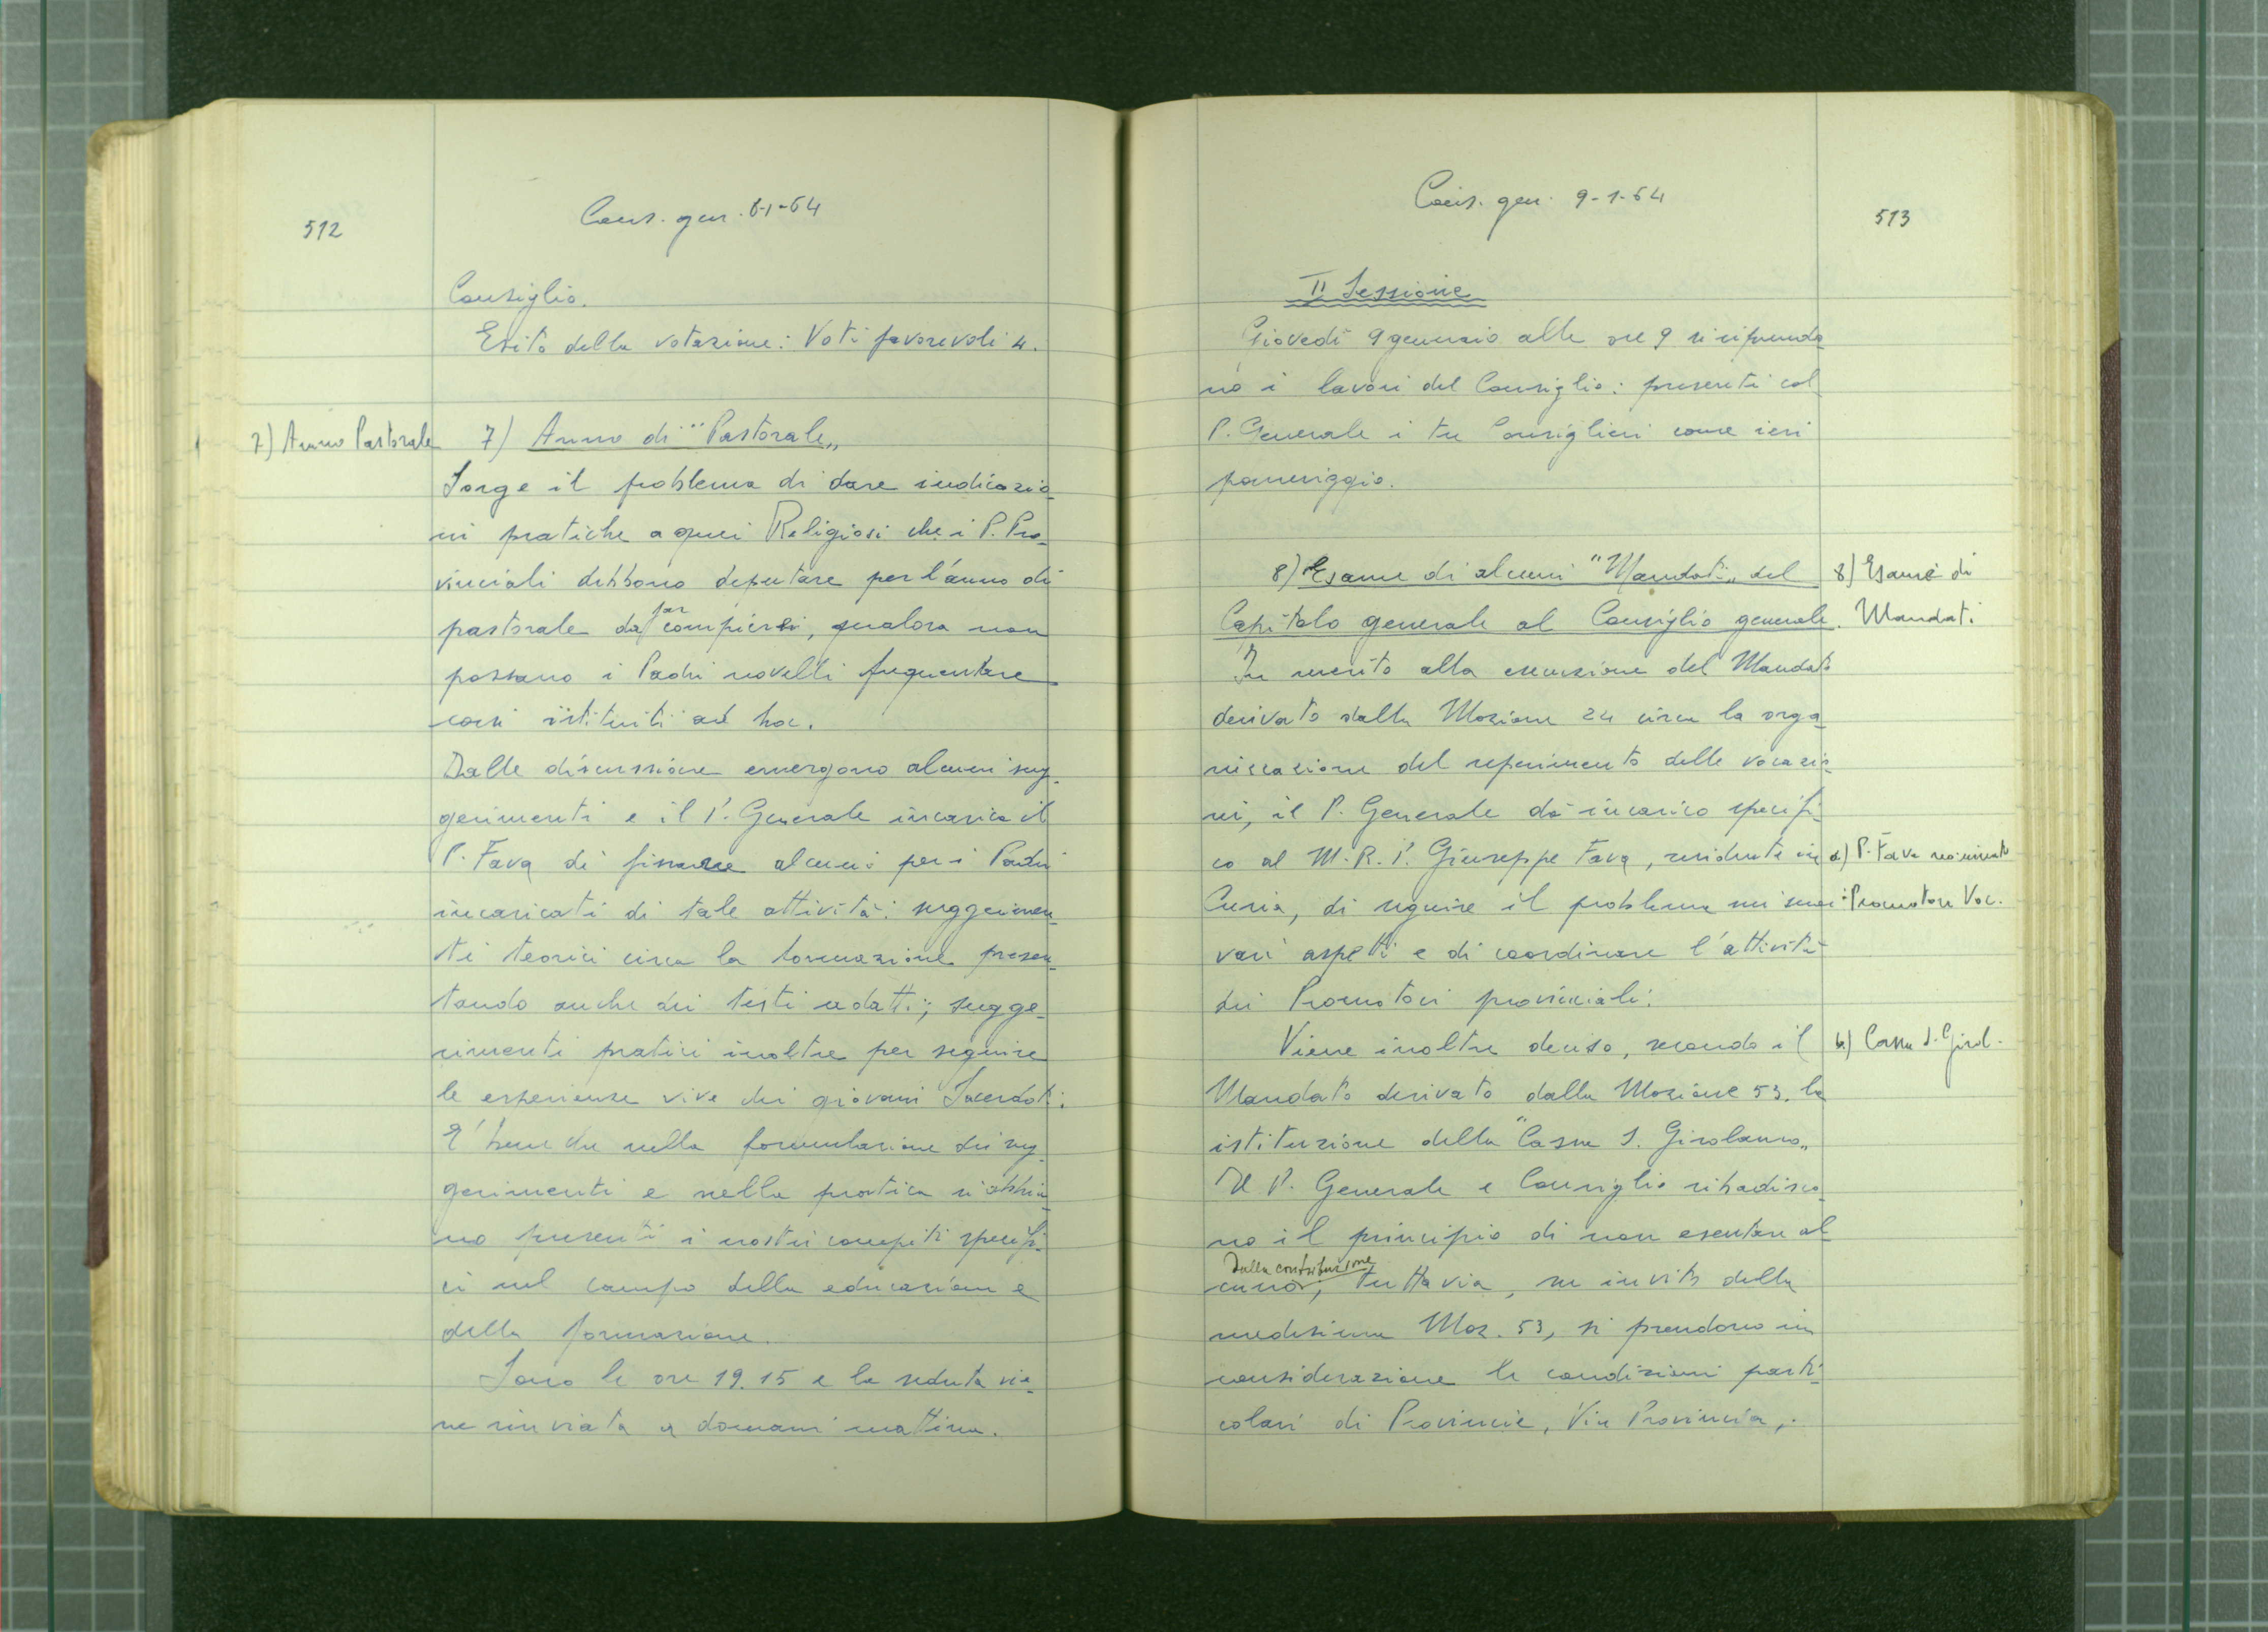 512
Cons. gen. 8-1-64
Consiglio.
Esito della votazione: Voti favorevoli 4.
7) Anno Pastorale
7) Anno di "Pastorale„
Sorge il problema di dare indicazio-
ni pratiche a quei Religiosi che i P. Pro-
vinciali debbono deputare per l'anno di
pastorale da far compiersi, qualora non
possano i Padri novelli frequentare
corsi istituiti ad hoc.
Dalle discussione emergono alcuni sug-
gerimenti e il P. Generale incarica il
P. Fava di fissare alcuni per i Padri
incaricati di tale attività: suggerimen-
ti teorici circa la formazione presen-
tando anche dei testi adatti; sugge-
rimenti pratici inoltre per seguire
le esperienze vive dei giovani Sacerdoti.
E' bene che nella formulazione dei sug-
gerimenti e nella pratica si abbia-
no presenti i nostri compiti specifi-
ci nel campo della educazione e
della formazione.
Sono le ore 19.15 e la seduta vie-
ne rinviata a domani mattina.
Cons. gen. 9-1-64
513
II Sessione
Giovedì 9 gennaio alle ore 9 si riprendo-
no i lavori del Consiglio: presenti col
P. Generale i tre Consiglieri come ieri
pomeriggio.
8) Esame di alcuni "Mandati„ del
Capitolo generale al Consiglio generale.
8) Esame di
Mandati
In merito alla esecuzione del Mandato
derivato dalla Mozione 24 circa la orga-
nizzazione del reperimento delle vocazio-
ni, il P. Generale dà incarico specifi-
co al M. R. P. Giuseppe Fava, residente in
a) P. Fava
Curia, di seguire il problema nei suoi
Promotore Voc.
vari aspetti e di coordinare l'attività
dei Promotori provinciali.
Viene inoltre deciso, secondo il
b) Cassa S. Girol.
Mandato derivato dalla Mozione 53, la
istituzione della "Cassa S. Girolamo„
Il P. Generale e Consiglio ribadisco-
no il principio di non esentare al-
cuno dalla contribuzione; tuttavia, su invito della
medesima Moz. 53, si prendono in
considerazione le condizioni parti-
colari di Provincie, Vice Provincia,